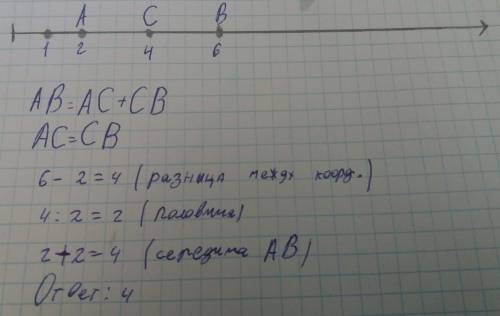 A C B
1 2 4 6
AB=AC+CB
AC=CB
6-2=4 (разница между коорд.)
4:2=2 (половина)
2+2=4 (середина AB)
Ответ: 4